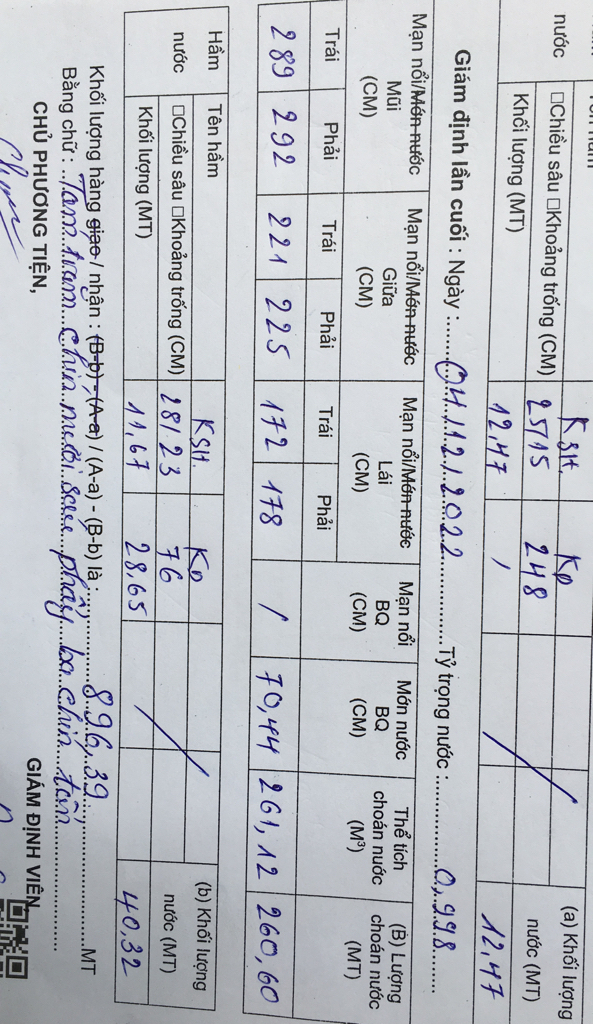 Tên hầm KSH. KD (a) Khối lượng
nước □Chiều sâu □Khoảng trống (CM) 25/15 248 nước (MT)
Khối lượng (MT) 12,47 / 12,47
Giám định lần cuối : Ngày : 04/12/2022 Tỷ trọng nước : 0,998
Mạn nổi/Món nước Mũi (CM) Mạn nổi/Món nước Giữa (CM) Mạn nổi/Món nước Lái (CM) Mạn nổi BQ (CM) Món nước BQ (CM) Thể tích choán nước (M³) (B) Lượng choán nước (MT)
Trái Phải Trái Phải Trái Phải
289 292 221 225 172 178 / 70,44 261,12 260,60
Hầm Tên hầm KSH. KD (b) Khối lượng
nước □Chiều sâu □Khoảng trống (CM) 28/23 76 nước (MT)
Khối lượng (MT) 11,67 28,65 40,32
Khối lượng hàng giao / nhận : (B-b) - (A-a) / (A-a) - (B-b) là : 896,39 MT
Bằng chữ : Tám trăm chín mươi sáu phẩy ba chín tấn
CHỦ PHƯƠNG TIỆN, GIÁM ĐỊNH VIÊN,